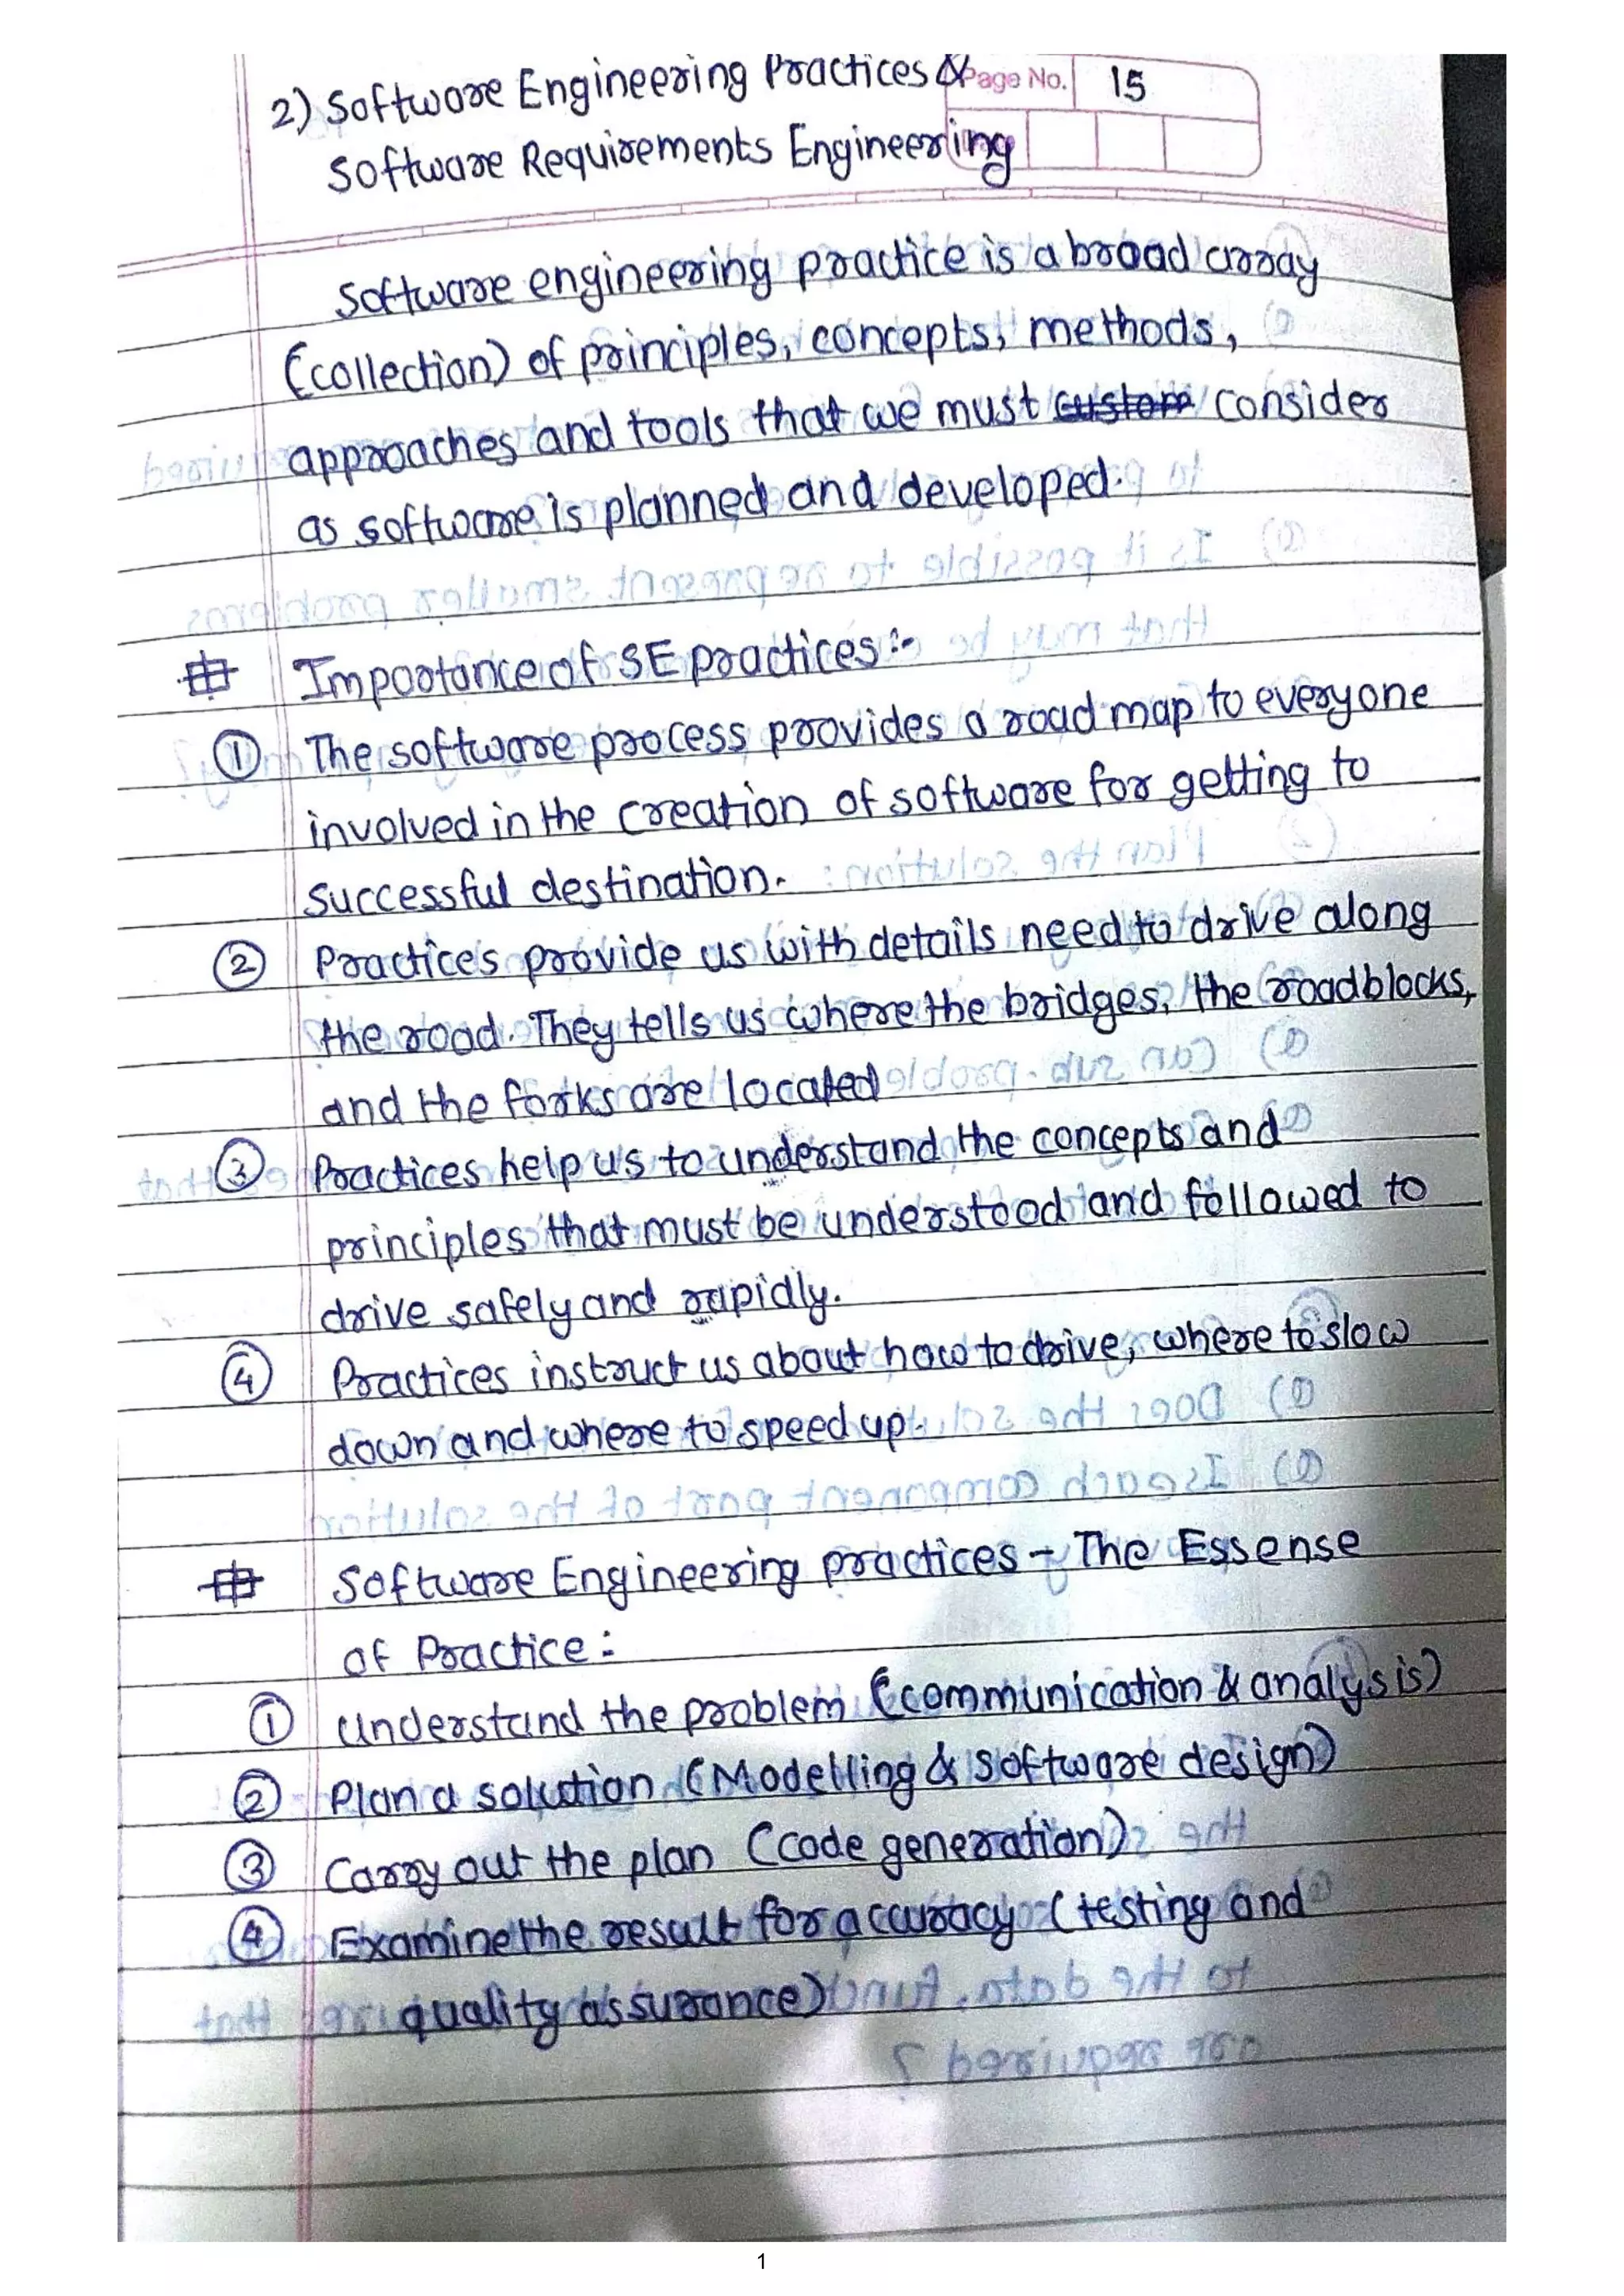 2) Software Engineering Practices &
Page No. 15
Software Requirements Engineering
Software engineering practice is a broad array
(collection) of principles, concepts, methods,
approaches and tools that we must custom consider
as software is planned and developed.
# Importance of SE practices :-
① The software process provides a road map to everyone
involved in the creation of software for getting to
successful destination.
② Practices provide us with details need to drive along
the road. They tells us where the bridges, the roadblocks,
and the forks are located
③ Practices help us to understand the concepts and
principles that must be understood and followed to
drive safely and rapidly.
④ Practices instruct us about how to drive, where to slow
down and where to speed up.
# Software Engineering practices - The Essense
of Practice :
① Understand the problem (communication & analysis)
② Plan a solution (Modelling & Software design)
③ Carry out the plan (code generation)
④ Examine the result for accuracy (testing and
quality assurance)
1